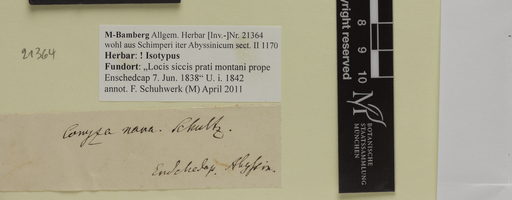 21364
M-Bamberg Allgem. Herbar [Inv.-]Nr. 21364
wohl aus Schimperi iter Abyssinicum sect. II 1170
Herbar: ! Isotypus
Fundort: „Locis siccis prati montani prope
Enschedcap 7. Jun. 1838“ U. i. 1842
annot. F. Schuhwerk (M) April 2011
Conyza nova. Schultz.
Enschedcap. Abyssin.
yright reserved
8 9 10
BOTANISCHE
STAATSSAMMLUNG
MÜNCHEN